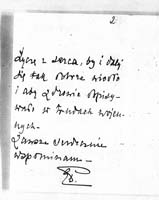 2
Życzę z serca, by i dalej
się tak dobrze wiodło
i aby zdrowie dopisy-
wało w trudach wojen-
nych.
Zawsze serdecznie
wspominam –